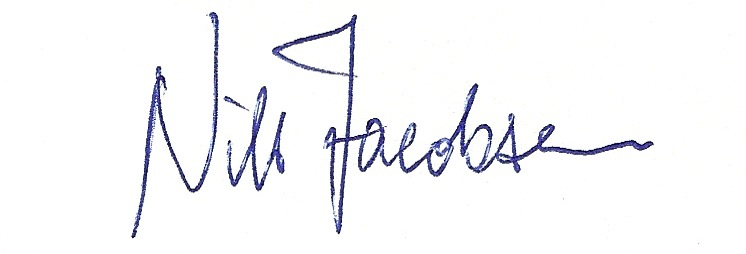 Nils Jacobsen